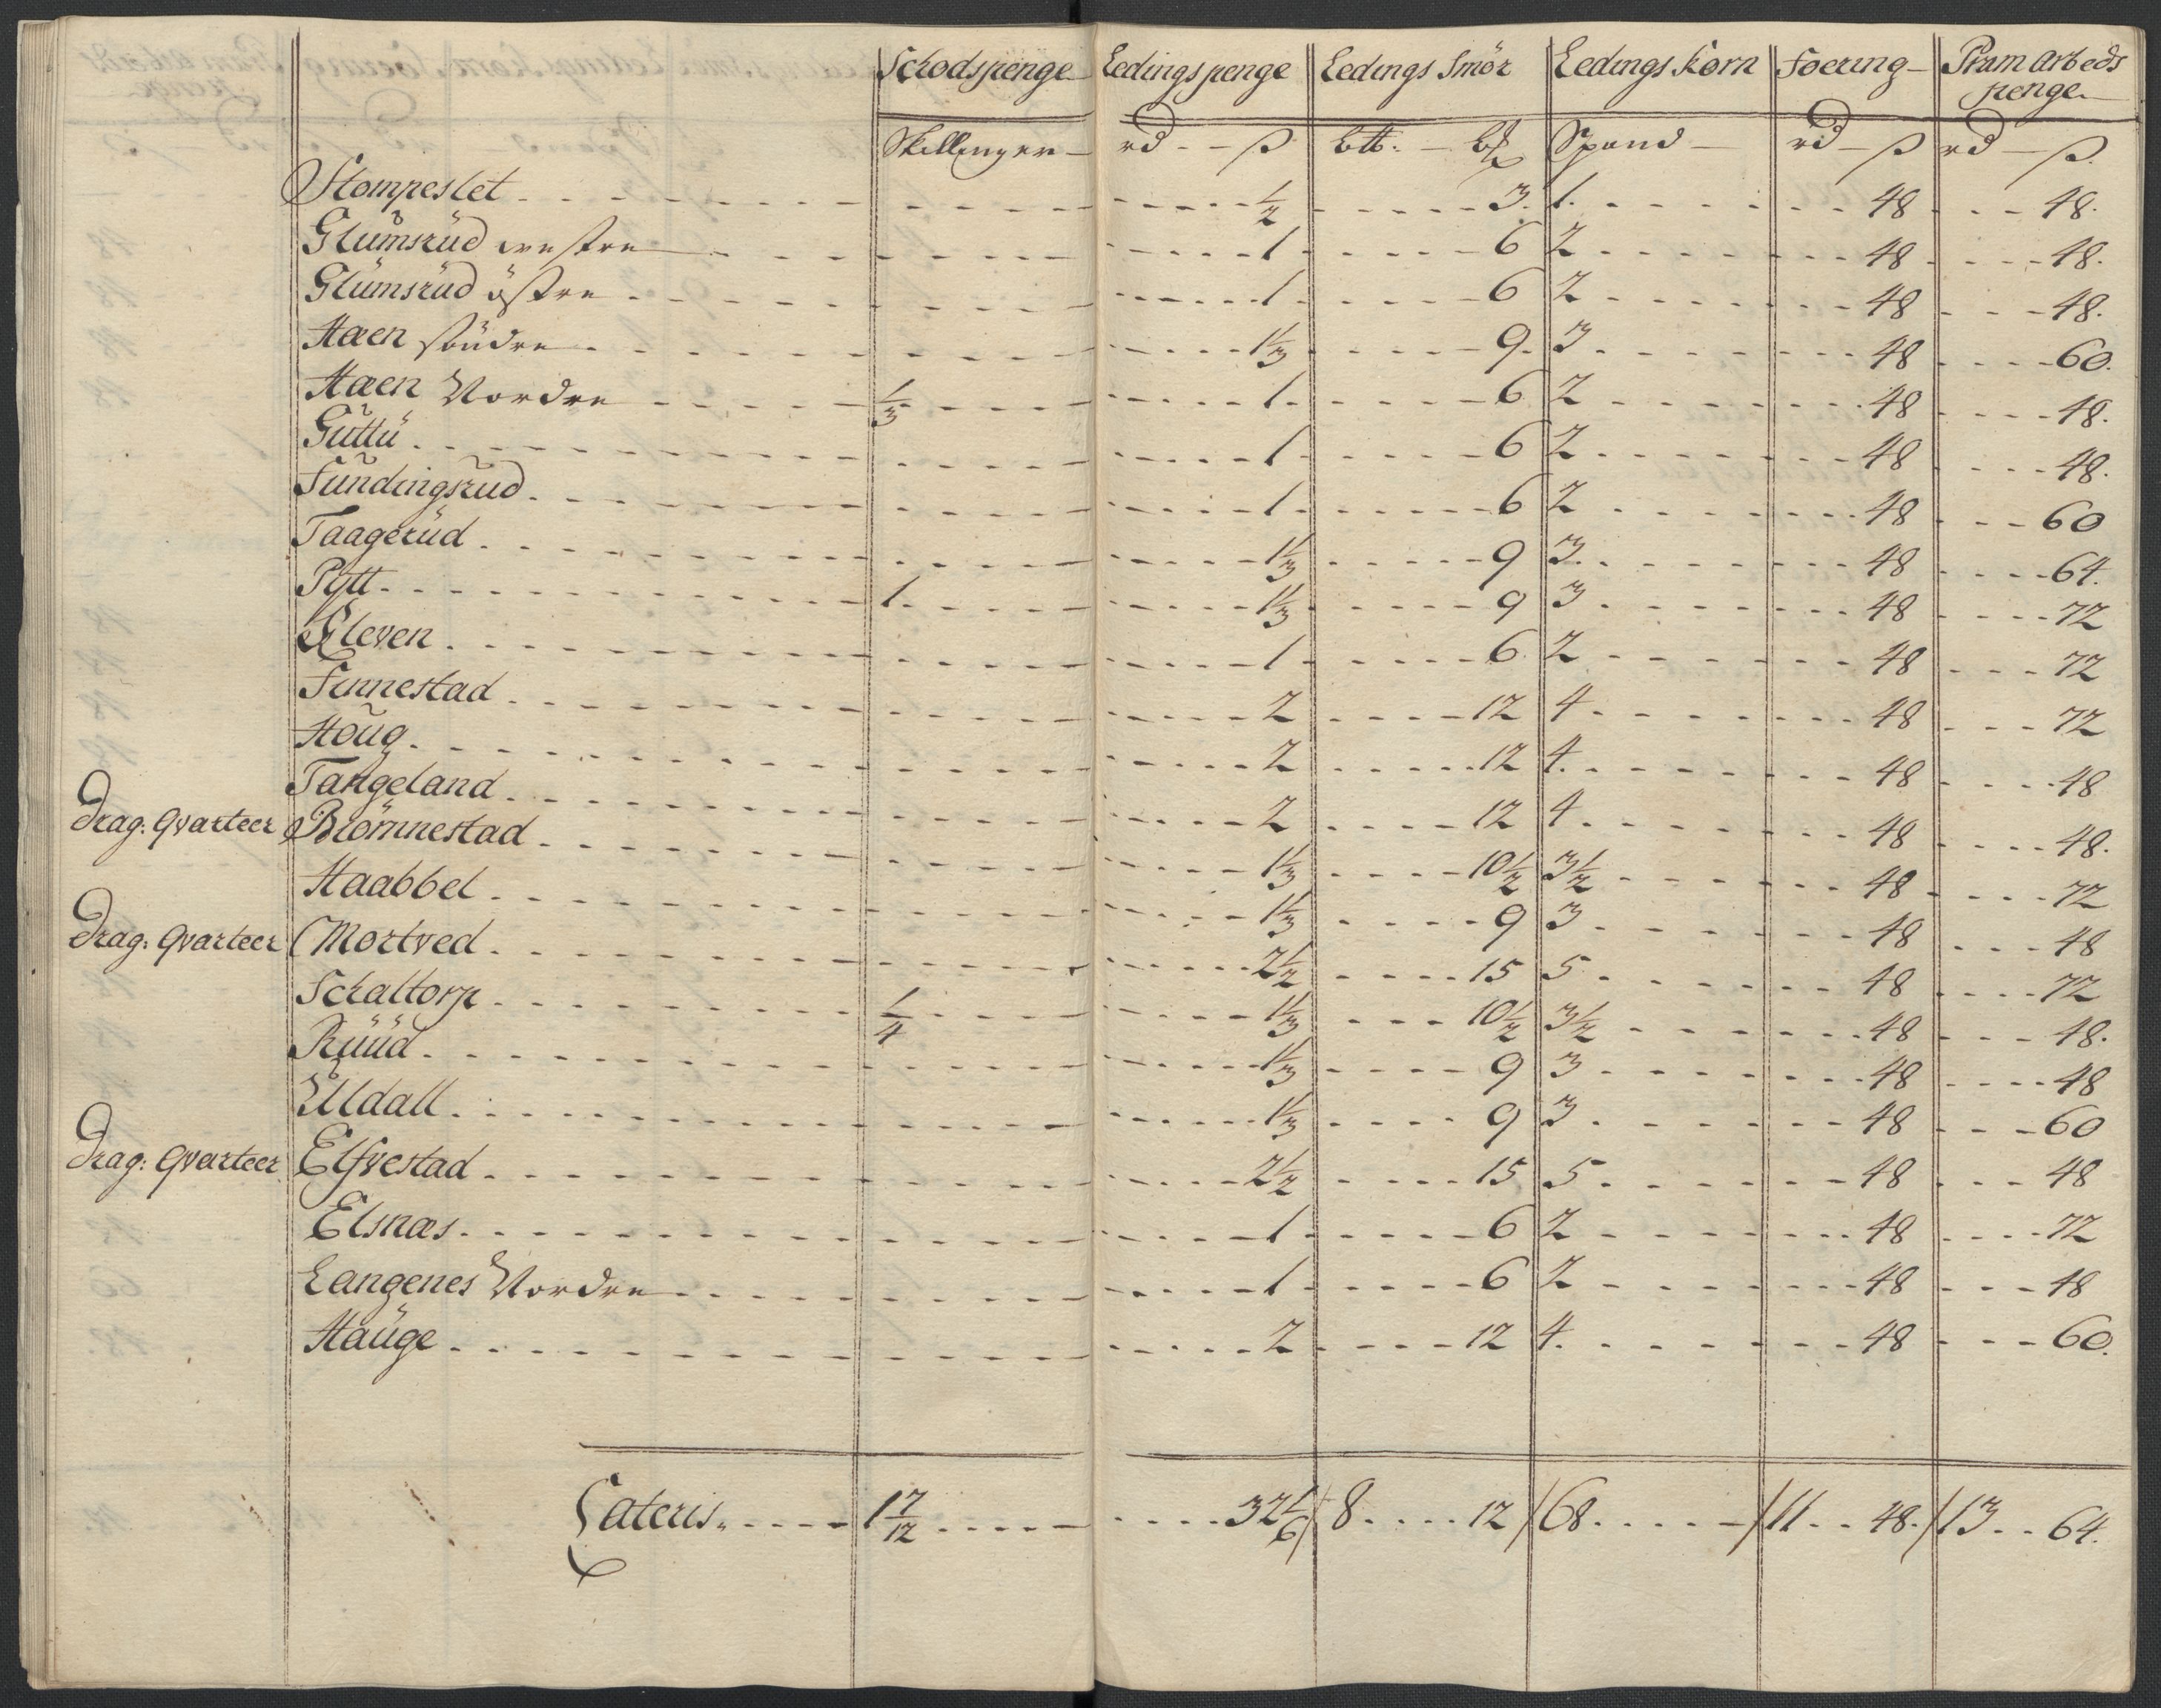 Schodspenge Ledingspenge Ledings Smör Ledings Korn Foering Pram Arbeds penge
Skillinger rd ß btt. bß Spand rd ß rd ß.
Stompeslet 1/2 3. 1. 48 48.
Glumsrüd westre 1 6 2 48 48.
Glümsrüd östre 1 6 2 48 48.
Haen söndre 1 1/3 9. 3 48 60.
Haen Nordre 1/3 1 6 2 48 48.
Guttü 1 6 2 48 48.
Fundingsrud 1 6 2 48 60
Taagerüd 1 1/3 9 3 48 64.
Pytt 1 1 1/3 9 3 48 72
Kleven 1 6 2 48 72
Finnestad 2 12 4 48 72
Houg 2 12 4 48 48
Tangeland 2 12 4 48 48.
Drag: Qvarteer Blömnestad 1 1/3 10 1/2 3 1/2 48 72
Haabbel 1 1/3 9 3 48 48
Drag: Qvarteer Mortved 2 1/2 15 5 48 72
Schaltorp 1/4 1 1/3 10 1/2 3 1/2 48 48.
Rüüd 1 1/3 9 3 48 48
Uldall 1 1/3 9 3 48 60
Drag: Qvarteer Elfvestad 2 1/2 15 5 48 48
Elsnæs 1 6 2 48 72
Langenes Nordre 1 6 2 48 48
Haüge 2 12 4. 48 60.
Lateris 1 7/12 32 1/6 / 8 12 / 68 / 11 48. / 13 64.